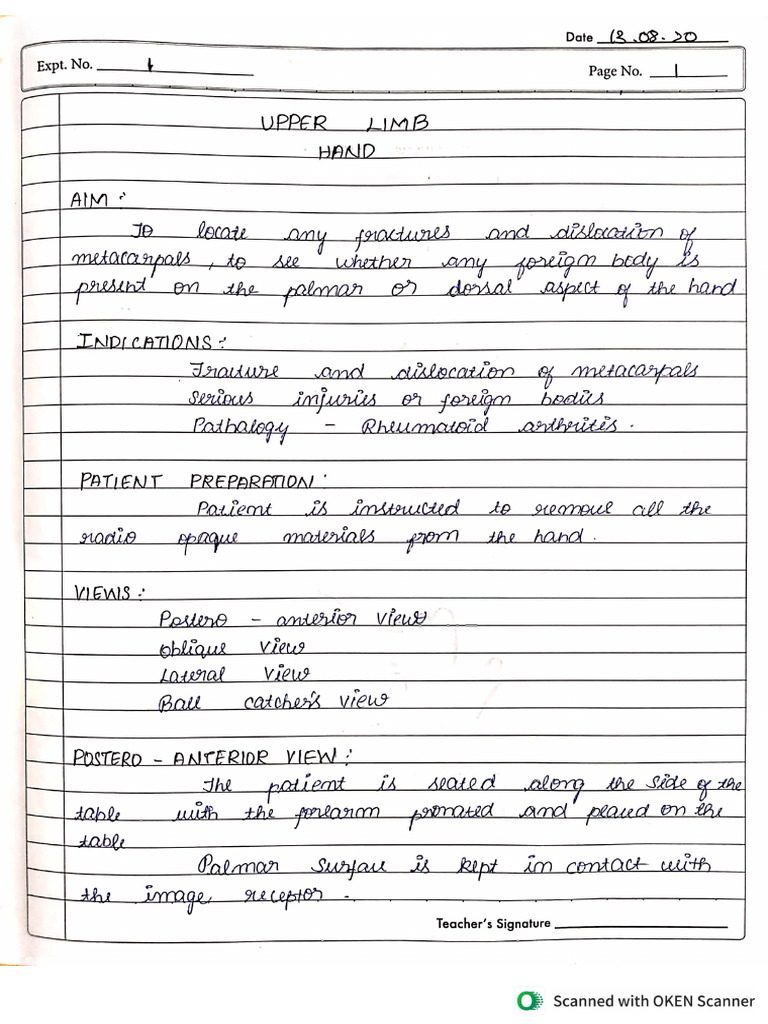 Date 13.08.20
Expt. No. 1
Page No. 1
UPPER LIMB
HAND
AIM :
To locate any fractures and dislocation of
metacarpals , to see whether any foreign body is
present on the palmar or dorsal aspect of the hand
INDICATIONS :
Fracture and dislocation of metacarpals
Serious injuries or foreign bodies
Pathalogy - Rheumatoid arthritis .
PATIENT PREPARATION :
Patient is instructed to remove all the
radio opaque materials from the hand .
VIEWS :
Postero - anterior view
Oblique view
Lateral view
Ball catcher's view
POSTERO - ANTERIOR VIEW :
The patient is seated along the side of the
table with the forearm pronated and placed on the
table
Palmar surface is kept in contact with
the image receptor .
Teacher's Signature
Scanned with OKEN Scanner